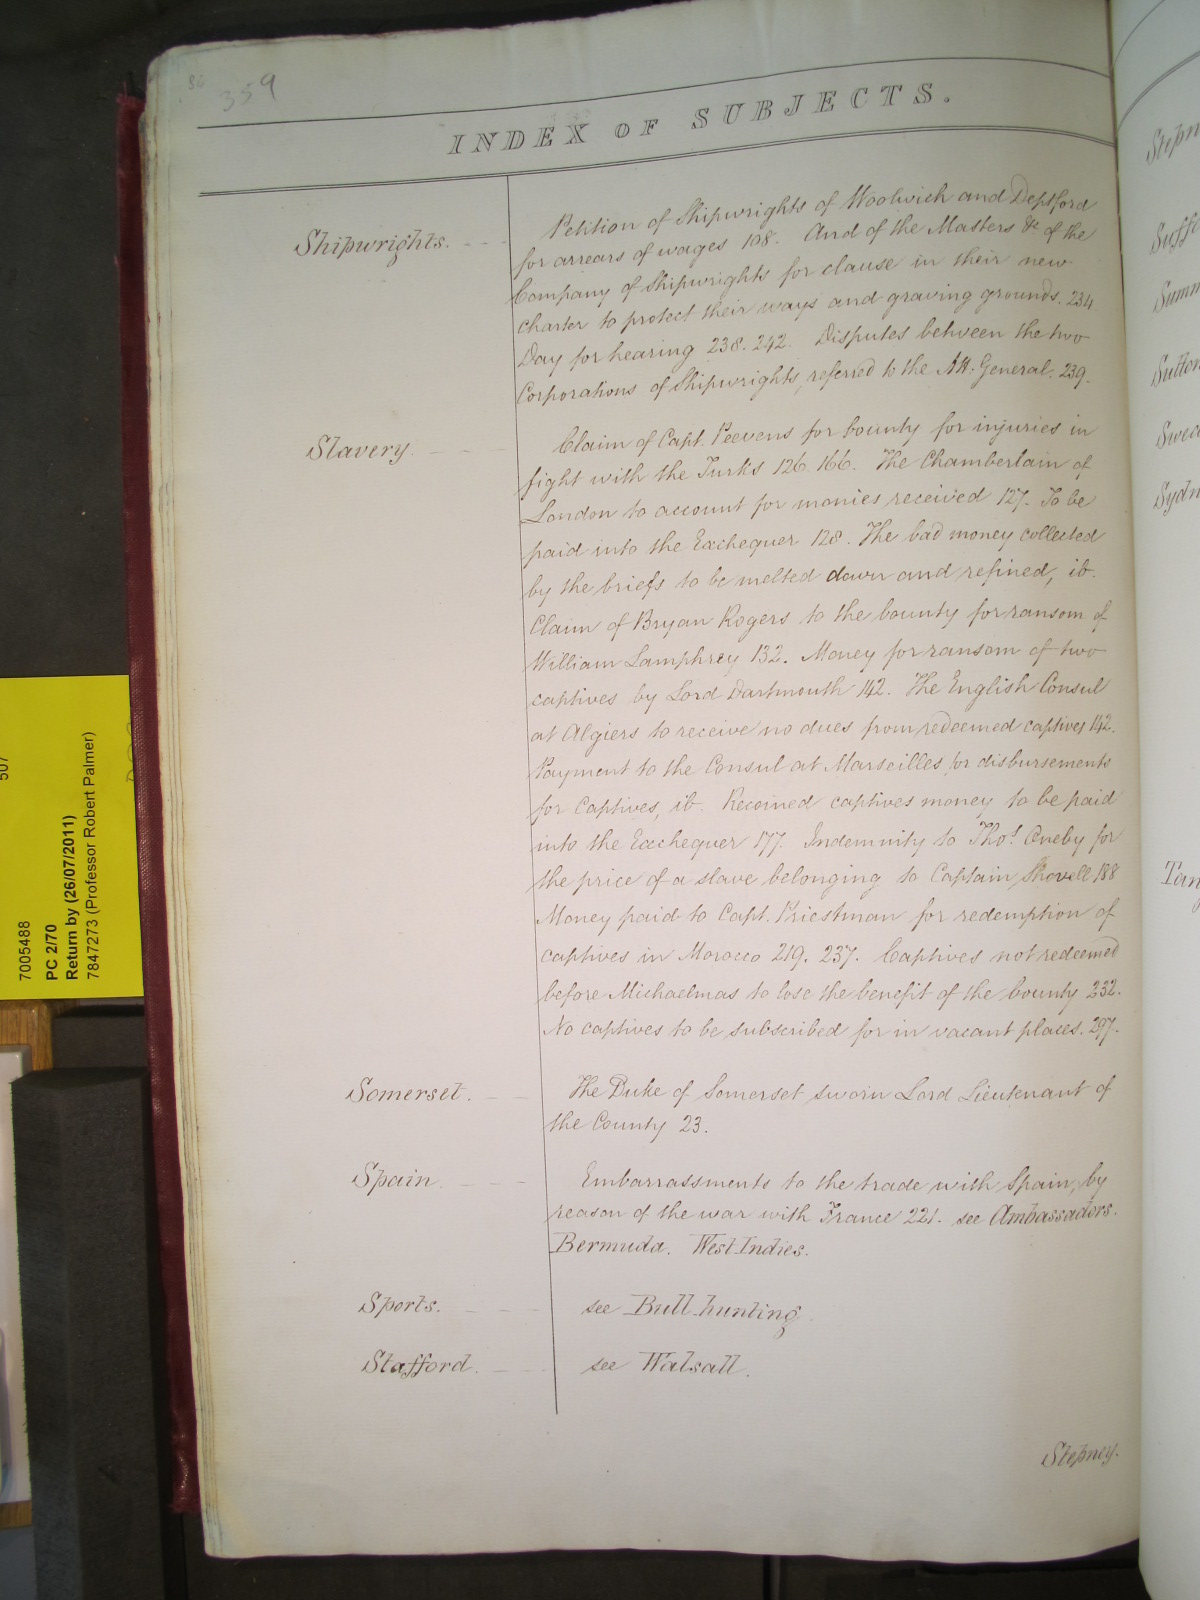 359
INDEX OF SUBJECTS.
Shipwrights. Petition of Shipwrights of Woolwich and Deptford
for arrears of wages 108. And of the Masters &c of the
Company of Shipwrights for clause in their new
charter to protect their ways and graving grounds. 234
Day for hearing 238. 242. Disputes between the two
Corporations of Shipwrights, referred to the Att. General. 239.
Slavery. Claim of Capt. Peevens for bounty for injuries in
fight with the Turks 126. 166. The Chamberlain of
London to account for monies received 127. To be
paid into the Exchequer 128. The bad money collected
by the briefs to be melted down and refined, ib.
Claim of Bryan Rogers to the bounty for ransom of
William Lamphrey 132. Money for ransom of two
captives by Lord Dartmouth 142. The English Consul
at Algiers to receive no dues from redeemed captives 142.
Payment to the Consul at Marseilles for disbursements
for Captives, ib. Recoined captives money to be paid
into the Exchequer 177. Indemnity to Thos. Oneby for
the price of a slave belonging to Captain Shovell 188
Money paid to Capt. Priestman for redemption of
captives in Morocco 219. 237. Captives not redeemed
before Michaelmas to lose the benefit of the bounty 232.
No captives to be subscribed for in vacant places. 297.
Somerset. The Duke of Somerset sworn Lord Lieutenant of
the County 23.
Spain. Embarrassments to the trade with Spain, by
reason of the war with France 221. see Ambassadors.
Bermuda. West Indies.
Sports. see Bull hunting.
Stafford. see Walsall.
Stepney.
507
7005488
PC 2/70
Return by (26/07/2011)
7847273 (Professor Robert Palmer)
Stepn
Suff
Summ
Sutton
Swed
Sydn
Tan